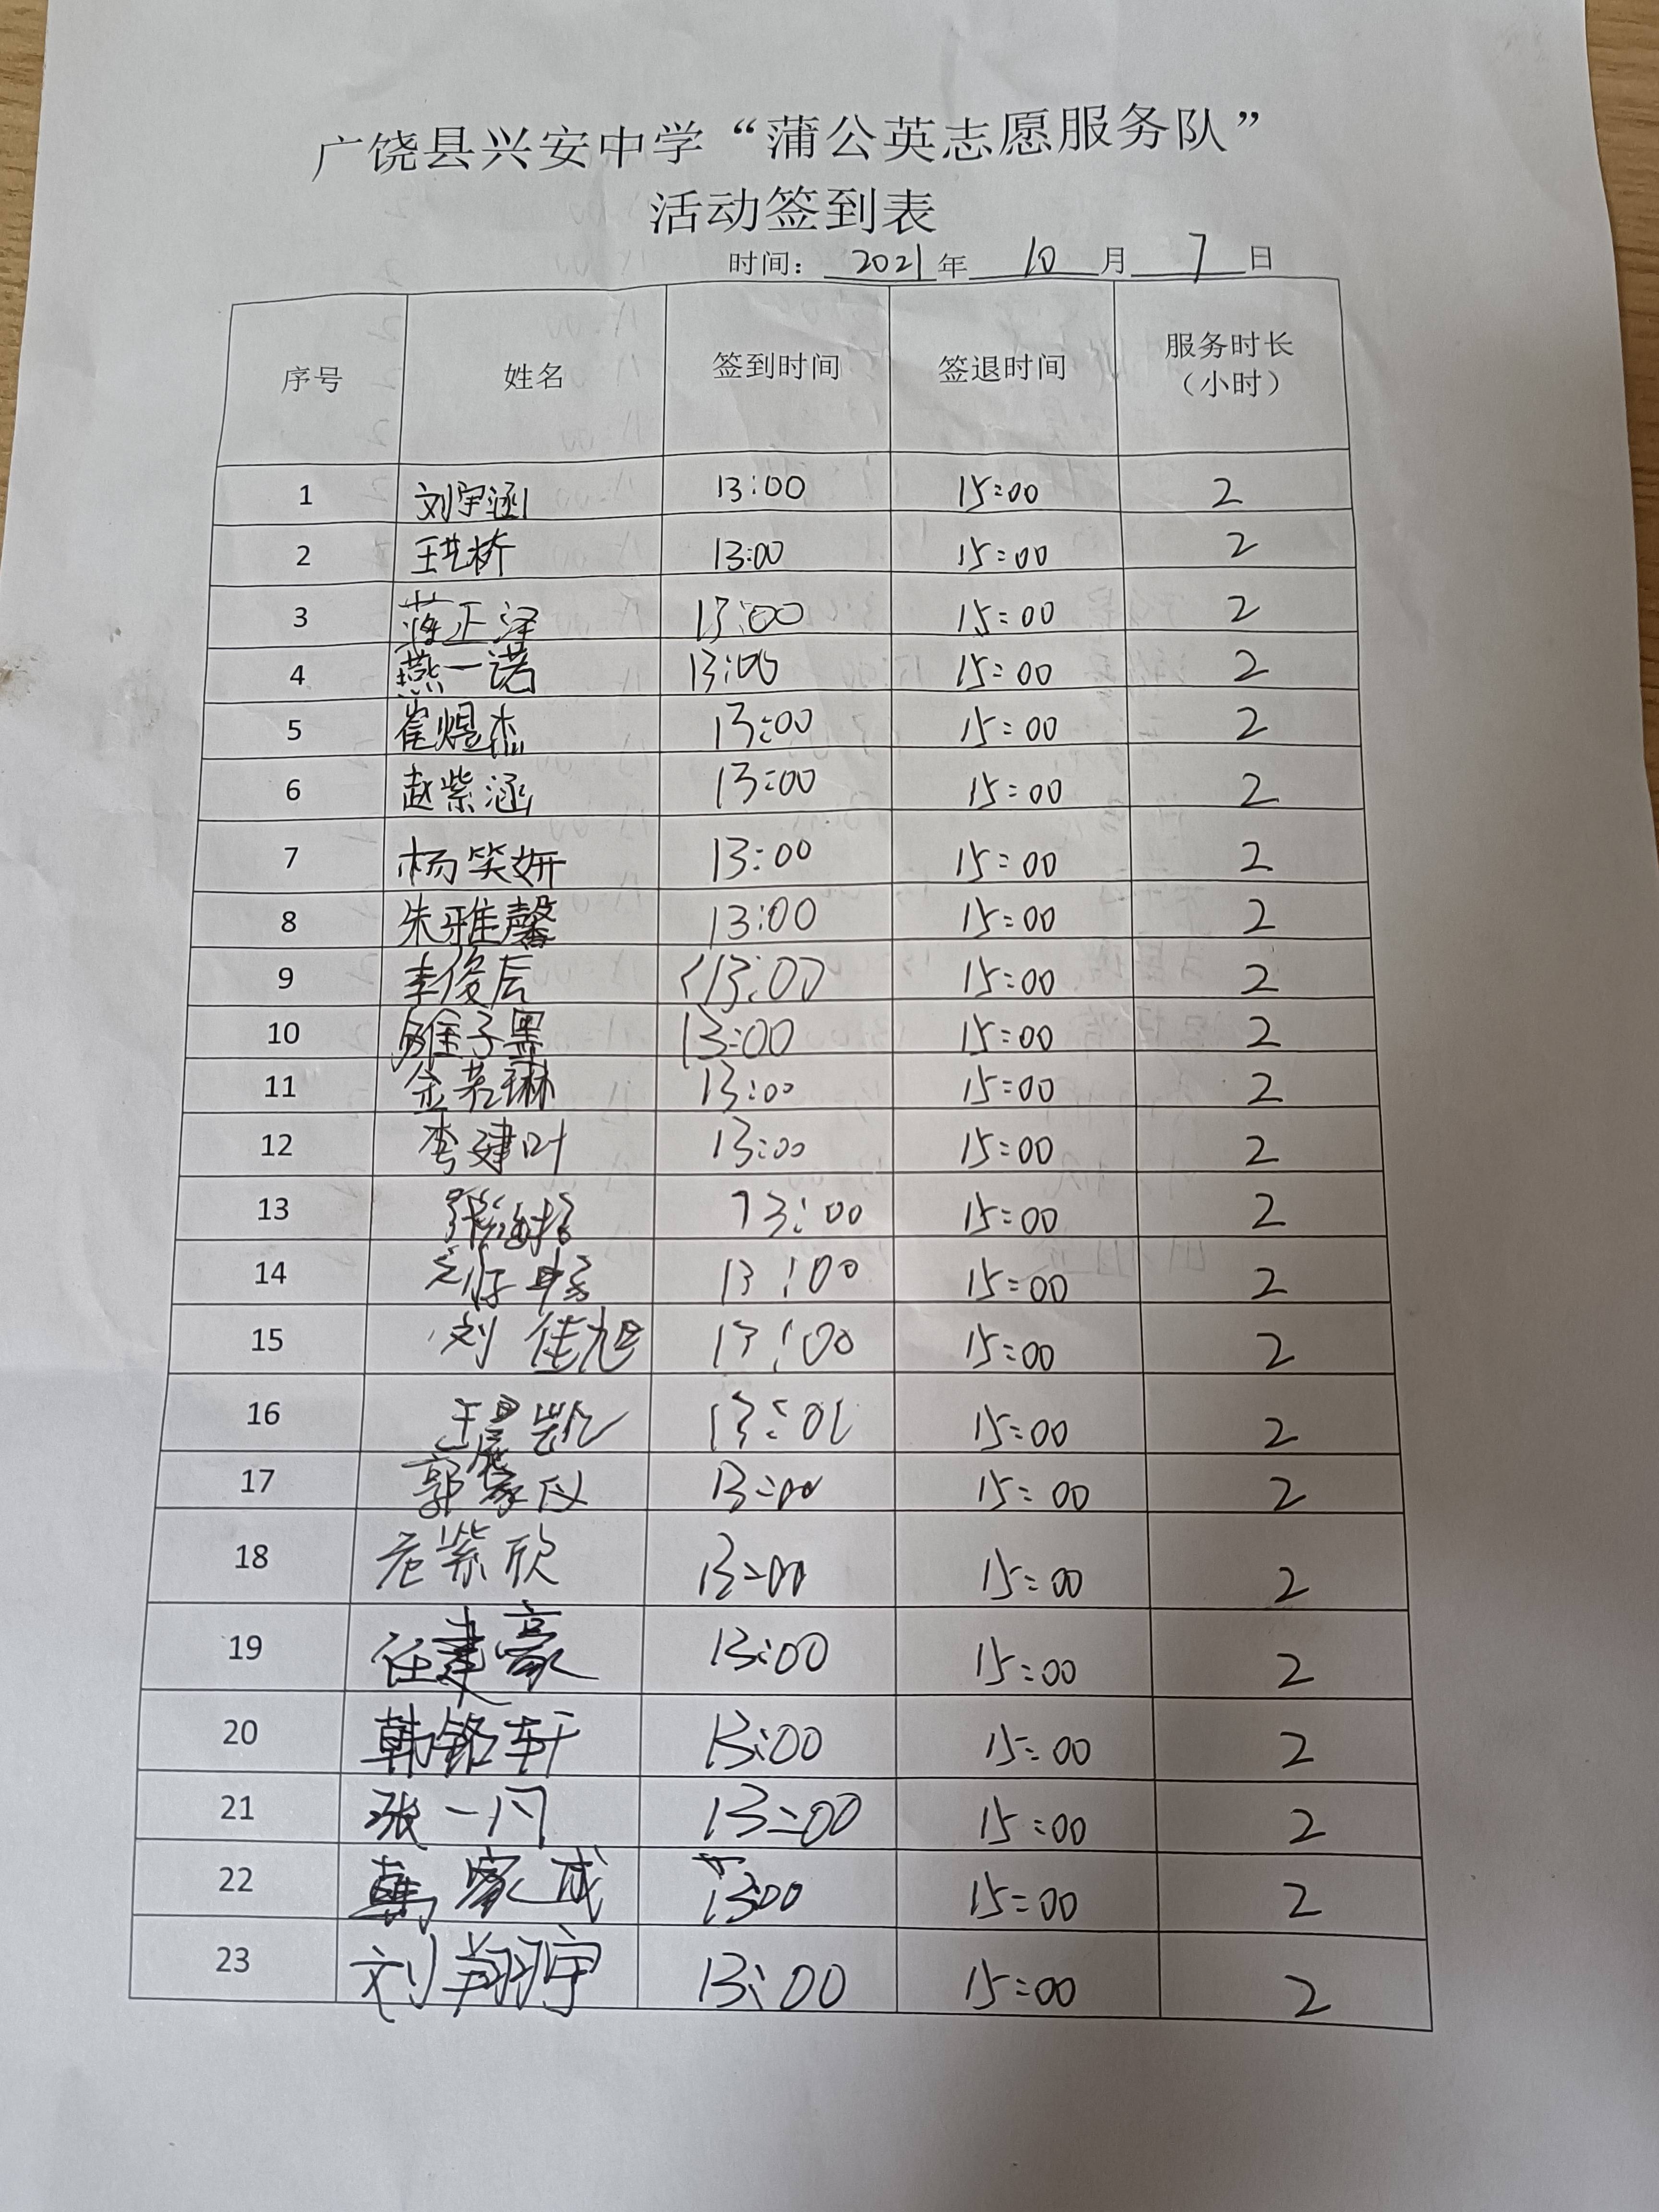 广饶县兴安中学“蒲公英志愿服务队”
活动签到表
时间：2021年10月7日
序号 姓名 签到时间 签退时间 服务时长（小时）
1 刘宇涵 13:00 15:00 2
2 王艺桥 13:00 15:00 2
3 蒋正泽 13:00 15:00 2
4 燕一诺 13:00 15:00 2
5 崔煜杰 13:00 15:00 2
6 赵紫涵 13:00 15:00 2
7 杨笑妍 13:00 15:00 2
8 朱雅馨 13:00 15:00 2
9 李俊辰 13:00 15:00 2
10 13:00 15:00 2
11 13:00 15:00 2
12 李建叶 13:00 15:00 2
13 13:00 15:00 2
14 13:00 15:00 2
15 刘佳旭 13:00 15:00 2
16 王晨凯 13:00 15:00 2
17 郭家仪 13:00 15:00 2
18 紫欣 13:00 15:00 2
19 任建豪 13:00 15:00 2
20 韩铭轩 13:00 15:00 2
21 张一凡 13:00 15:00 2
22 韩家成 13:00 15:00 2
23 刘翔宇 13:00 15:00 2